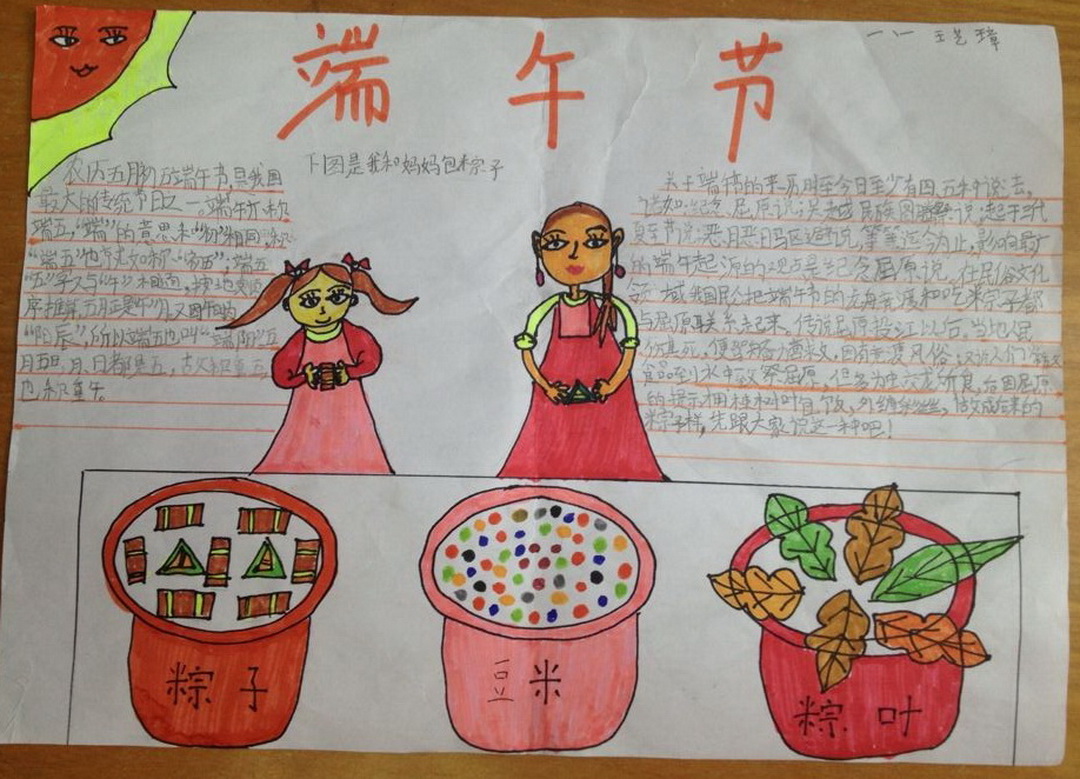 端午节
一八一 王艺璋
下图是我和妈妈包粽子
农历五月初五端午节,是我国
最大的传统节日之一。端午亦称
端五,“端”的意思和“初”相同,称
“端五”也就如称“初五”;端五
“五”字又与“午”相通,按地支
序推算,五月正是“午”月。又因午时为
“阳辰”,所以端五也叫“端阳”。五
月五日,月、日都是五,古又称重五
也称重午。
关于端午节的来历,时至今日至少有四、五种说法,
诸如:纪念屈原说;吴越民族图腾祭说;起于三代
夏至节说;恶月恶日驱避说,等等。迄今为止,影响最广
的端午起源的观点是纪念屈原说。在民俗文化
领域,我国民众把端午节的龙舟竞渡和吃粽子都
与屈原联系起来。传说屈原投江以后,当地人民
伤其死,便驾舟奋力营救,因有竞渡风俗;又说人们
食品到水中致祭屈原,但多为蛟龙所食,后因屈原
的提示用楝树叶包饭,外缠彩丝,做成后来的
粽子样,先跟大家说这一种吧!
粽子
豆米
粽叶